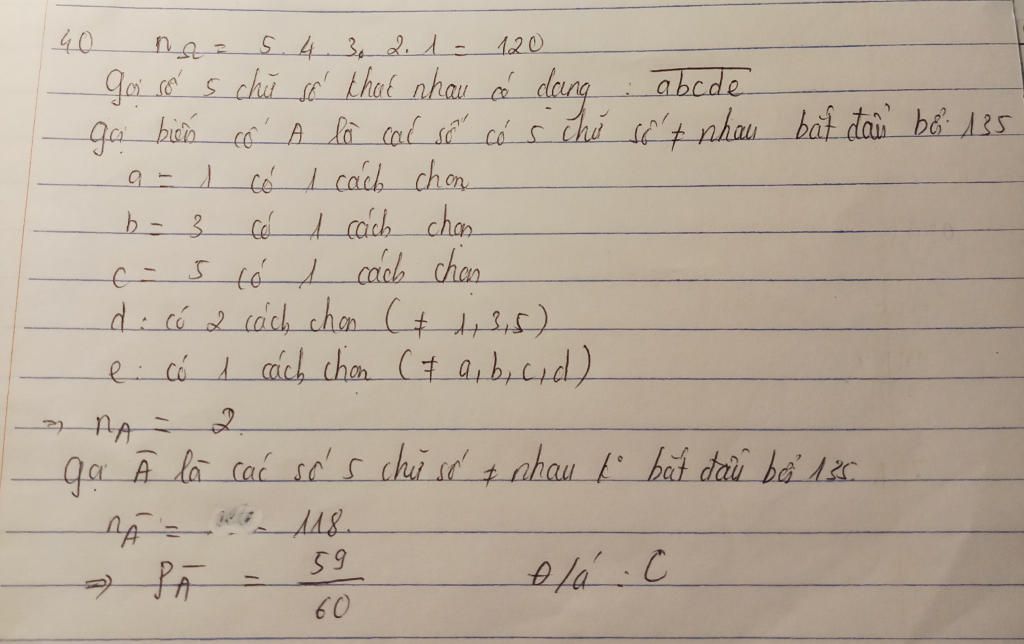 40 nΩ = 5. 4. 3. 2. 1 = 120
gọi số 5 chữ số khác nhau có dạng : abcde
gọi biến cố A là các số có 5 chữ số ≠ nhau bắt đầu bở 135
a = 1 có 1 cách chọn
b = 3 có 1 cách chọn
c = 5 có 1 cách chọn
d : có 2 cách chọn ( ≠ 1, 3, 5 )
e : có 1 cách chọn ( ≠ a, b, c, d )
=> nA = 2.
gọi Ā là các số 5 chữ số ≠ nhau k° bắt đầu bở 135.
nĀ = 118.
=> PĀ = 59/60 Đ/á : C